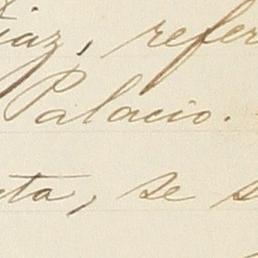 iaz, refer
Palacio.
ta, se s